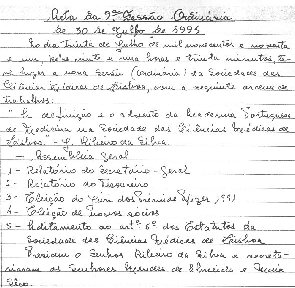 Acta da 9ª Sessão Ordinária
de 30 de Julho de 1991
No dia trinta de Julho de mil novecentos e noventa
e um, pelas vinte e uma horas e trinta minutos, teve
lugar a nona Sessão Ordinária da Sociedade das
Ciências Médicas de Lisboa, com a seguinte ordem de
trabalhos:
"A definição e o advento da Portuguesa
de Medicina na Sociedade das Ciências Médicas de
Lisboa." - da Silva.
- Assembleia Geral
1 - Relatório do Secretário-Geral
2 - Relatório do Tesoureiro
3 - Eleição do Juri dos Prémios Pfizer 1991
4 - Eleição de novos sócios
5 - Aditamento ao artº 6º dos Estatutos da
Sociedade das Ciências Médicas de Lisboa
Presidiu o Senhor da Silva e secreta-
riaram os Senhores de Almeida e